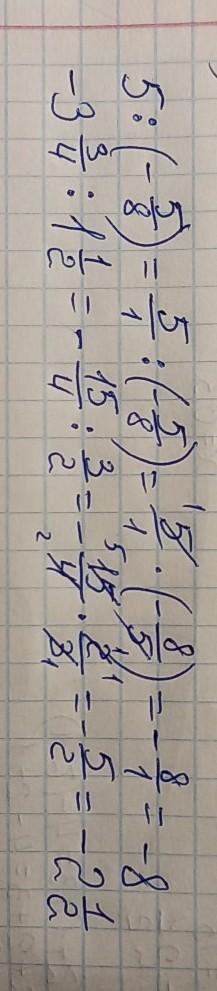 5 : (-5/8) = 5/1 : (-5/8) = 5/1 · (-8/5) = -8/1 = -8
-3 3/4 : 1 1/2 = -15/4 : 3/2 = -15/4 · 2/3 = -5/2 = -2 1/2